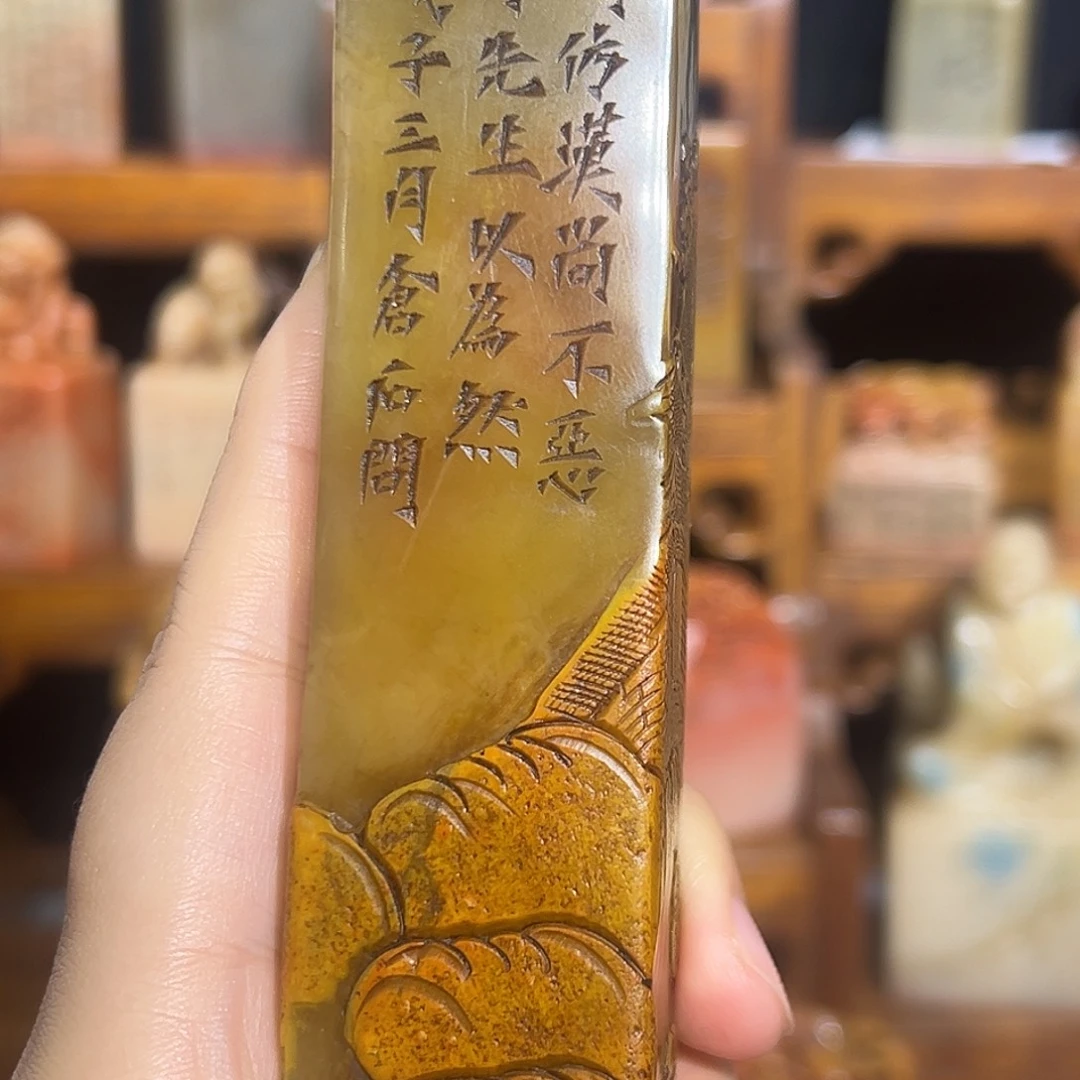 仿漢尚不惡
先生以為然
子三月倉石問